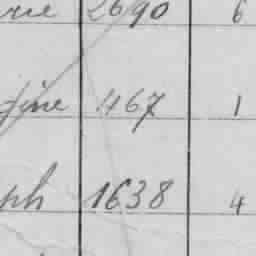 rie 2690 6
fine 1167 1
ph 1638 4